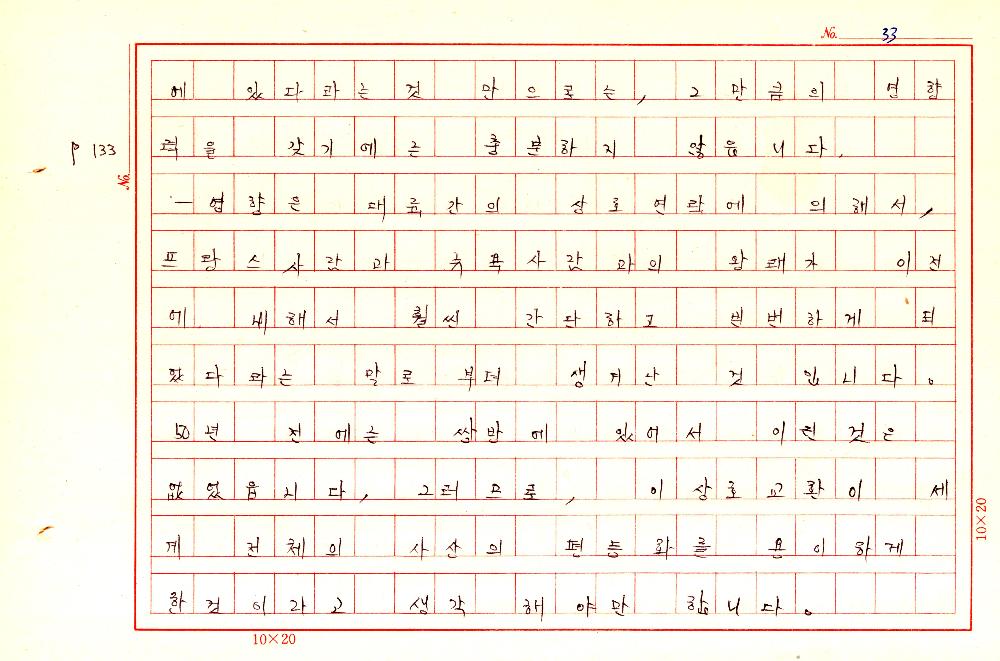 No. 33
에 있다라는 것 만으로는, 그만큼의 영향
p 133
력을 갖기에는 충분하지 않읍니다.
No.
— 영향은 대륙간의 상호연락에 의해서,
프랑스사람과 국폭사람과의 왕래가 이전
에 비해서 훨씬 간단하고 빈번하게 되
었다라는 말로 부터 생겨난 것 입니다。
50년 전에는 쌍반에 있어서 이런것은
없었읍니다, 그러므로, 이 상호교환이 세
계 전체의 사산의 편등화를 용이하게
한것이라고 생각 해야만 합니다。
10×20
10×20